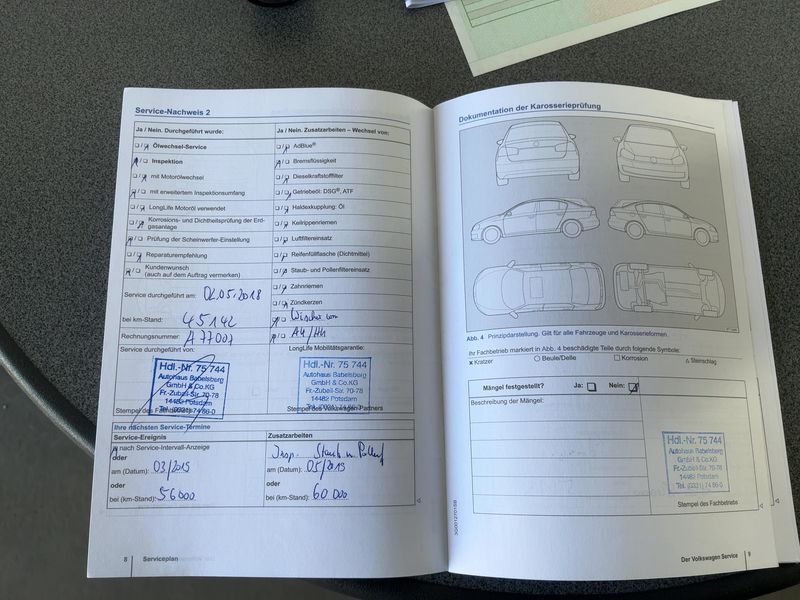 Service-Nachweis 2
Ja / Nein. Durchgeführt wurde:
Ölwechsel-Service
Inspektion
mit Motorölwechsel
mit erweitertem Inspektionsumfang
LongLife Motoröl verwendet
Korrosions- und Dichtheitsprüfung der Erd-
gasanlage
Prüfung der Scheinwerfer-Einstellung
Reparaturempfehlung
Kundenwunsch
(auch auf dem Auftrag vermerken)
Service durchgeführt am: 02.05.2018
bei km-Stand: 45142
Rechnungsnummer: A77007
Service durchgeführt von:
Hdl.-Nr. 75 744
Autohaus Babelsberg
GmbH & Co.KG
Fr.-Zubeil-Str. 70-78
14482 Potsdam
Tel. (0331) 74 86-0
Stempel des Fachbetriebs
Ja / Nein. Zusatzarbeiten – Wechsel von:
AdBlue®
Bremsflüssigkeit
Dieselkraftstofffilter
Getriebeöl: DSG®, ATF
Haldexkupplung: Öl
Keilrippenriemen
Luftfiltereinsatz
Reifenfüllflasche (Dichtmittel)
Staub- und Pollenfiltereinsatz
Zahnriemen
Zündkerzen
LongLife Mobilitätsgarantie:
Hdl.-Nr. 75 744
Autohaus Babelsberg
GmbH & Co.KG
Fr.-Zubeil-Str. 70-78
14482 Potsdam
Tel. (0331) 74 86-0
Stempel des Volkswagen Partners
Ihre nächsten Service-Termine
Service-Ereignis
nach Service-Intervall-Anzeige
oder
am (Datum): 03/2019
oder
bei (km-Stand): 56000
Zusatzarbeiten
Insp. Staub u Pollenf
am (Datum): 05/2019
oder
bei (km-Stand): 60 000
8 Serviceplan
Dokumentation der Karosserieprüfung
Abb. 4 Prinzipdarstellung. Gilt für alle Fahrzeuge und Karosserieformen.
Ihr Fachbetrieb markiert in Abb. 4 beschädigte Teile durch folgende Symbole:
x Kratzer ○ Beule/Delle □ Korrosion △ Steinschlag
Mängel festgestellt? Ja: Nein:
Beschreibung der Mängel:
Hdl.-Nr. 75 744
Autohaus Babelsberg
GmbH & Co.KG
Fr.-Zubeil-Str. 70-78
14482 Potsdam
Tel. (0331) 74 86-0
Stempel des Fachbetriebs
3G0012701SB
Der Volkswagen Service 9